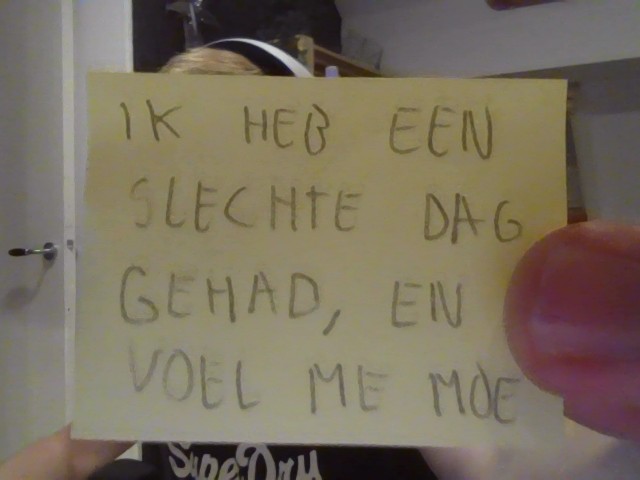 IK HEB EEN
SLECHTE DAG
GEHAD, EN
VOEL ME MOE
SupeDry